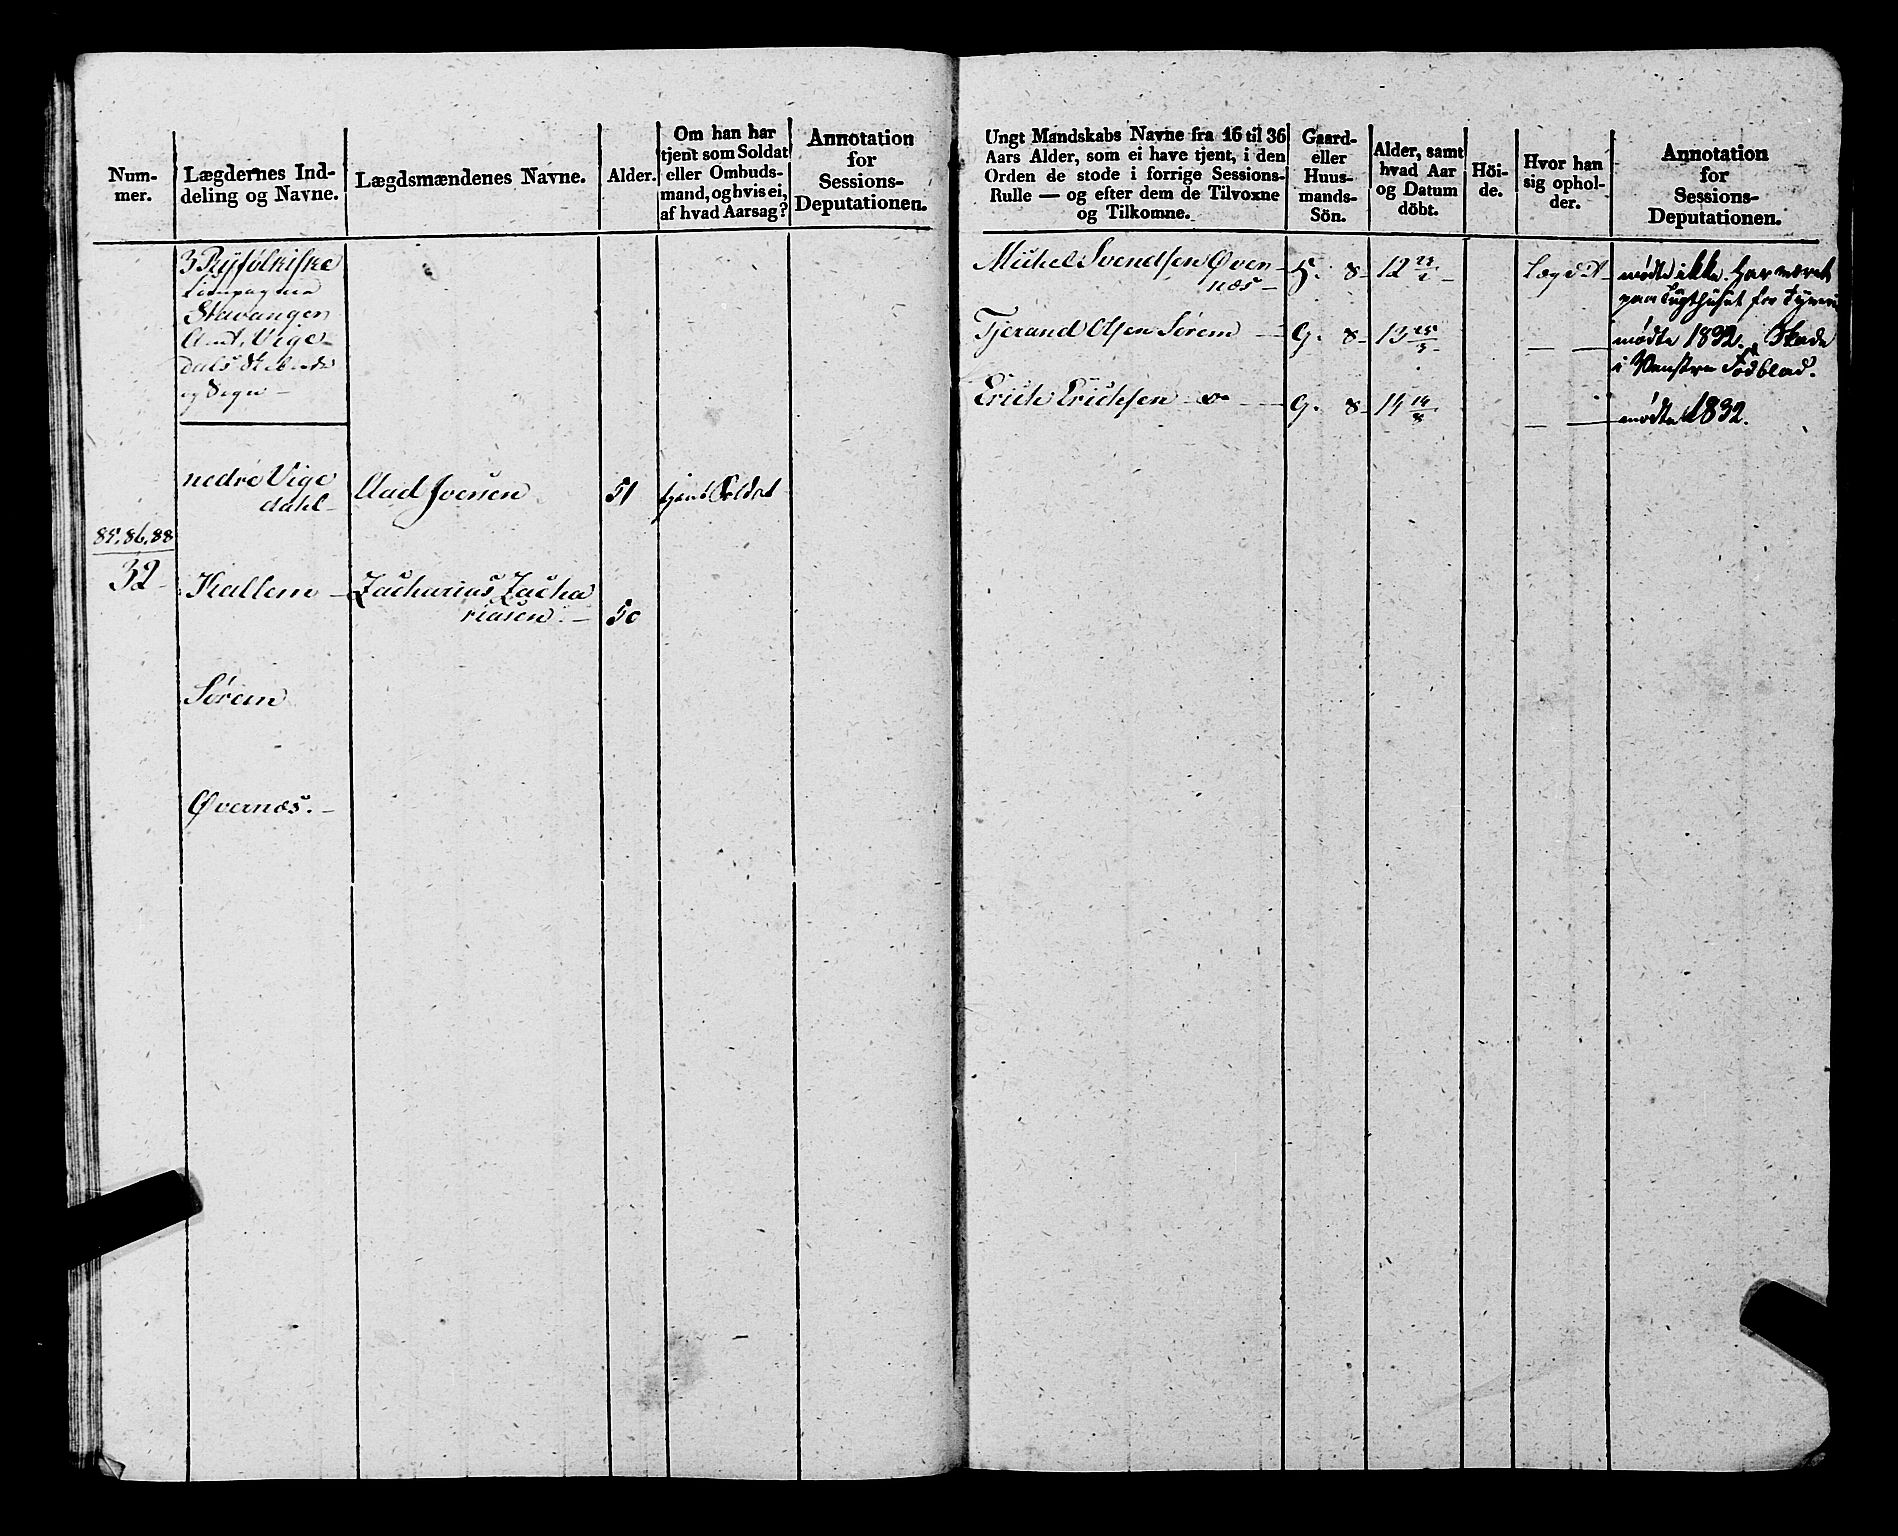 Num-
mer.
Lægdernes Ind-
deling og Navne.
Lægdsmændenes Navne.
Alder.
Om han har
tjent som Soldat
eller Ombuds-
mand, og hvis ei,
af hvad Aarsag?
Annotation
for
Sessions-
Deputationen.
3 Ryfølkiske
Compagnie
Stavanger
Amt, Vige-
dals
og Sogn -
nedre Vige
dahl -
Aad Iversen
51
tjent Soldat
85, 86, 88
32 -
Hallem -
Zacharias Zacha
riasen. -
50
Sørem
Øvernæs. -
Ungt Mandskabs Navne fra 16 til 36
Aars Alder, som ei have tjent, i den
Orden de stode i forrige Sessions-
Rulle — og efter dem de Tilvoxne
og Tilkomne.
Gaard-
eller
Huus-
mands-
Sön.
Alder, samt
hvad Aar
og Datum
döbt.
Höi-
de.
Hvor han
sig ophol-
der.
Annotation
for
Sessions-
Deputationen.
Michel Svendsen Øver
næs -
G. 8 - 12
Lægdet -
mødte ikke. Har været
paa Tugthuset for
Tjerand Olsen Sørem -
G. 8 - 13 25/3 -
— —
mødte 1832. Skade
i Venstre Fodblad.
Erich Erichsen
G. 8 - 14 14/8
— —
mødte 1832.